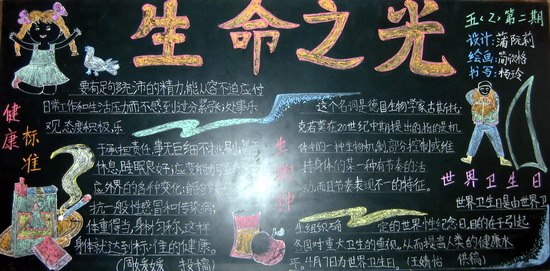 生命之光
五〈2〉第二期
设计:蒲阮莉
绘画:简欣格
书写:杨玲
健康标准
要有足的充沛的精力,能从容不迫应付
日常工作和生活压力而不感到过分紧张,处事乐
观,态度积极,乐
于承担责任,事无巨细不挑剔,善于
休息,睡眠良好;应变能力强,能适
应外界的各种变化;能够
抗一般性感冒和传染病;
体重得当,身材匀称,这样
身体就达到标准的健康。
(周媛媛 投稿)
生物钟
这个名词是德国生物学家古斯托·
克若莱在20世纪中期提出的指的是机
体的一种生物机制,部分控制或维
持身体的某一种有节奏的活
动,而且节奏表现不一的特征。
世界卫生日
世界卫生日是由世界卫
生组织确定的世界性纪念日,目的在于引起
各国对重大卫生的重视,从而提高人类的健康水
平。4月7日为世界卫生日。(汪婧怡 供稿)